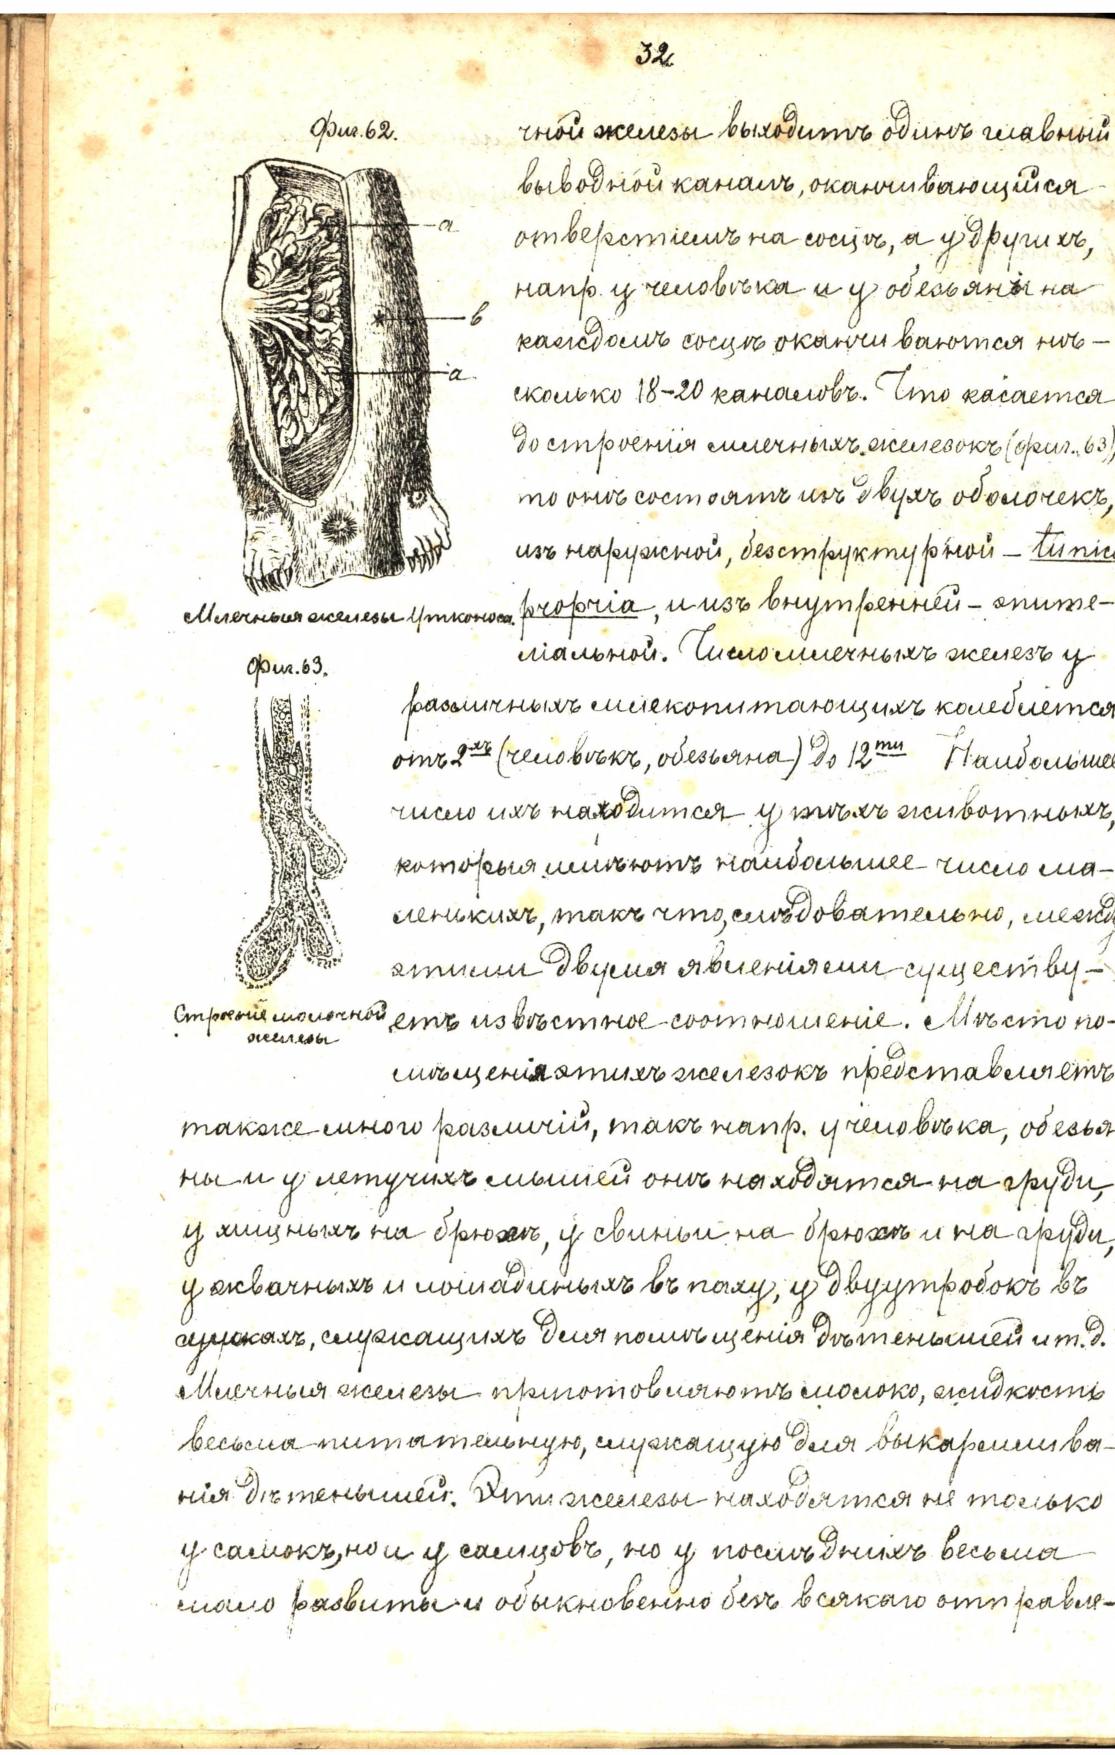 32
Фиг. 62.
чной железы выходитъ одинъ главный
выводной каналъ, оканчивающійся
отверстіемъ на сосцѣ, а у другихъ,
напр. у человѣка и у обезьяны на
каждомъ сосцѣ оканчиваются нѣ-
сколько 18-20 каналовъ. Что касается
до строенія млечныхъ железокъ (фиг. 63)
то онѣ состоятъ изъ двухъ оболочекъ,
изъ наружной, безструктурной - tunica
propria, и изъ внутренней - эпите-
ліальной. Число млечныхъ железъ у
a
в
a
Млечныя железы Утконоса.
Фиг. 63.
различныхъ млекопитающихъ колеблется
отъ 2хъ (человѣкъ, обезьяна) до 12ти Наибольшее
число ихъ находится у тѣхъ животныхъ,
которыя имѣютъ наибольшее число ма-
ленькихъ, такъ что, слѣдовательно, межд
этими двумя явленіями существу-
етъ извѣстное соотношеніе. Мѣсто по-
мѣщенія этихъ железокъ представляетъ
Строеніе молочной
железы
также много различій, такъ напр. у человѣка, обезья
ны и у летучихъ мышей онѣ находятся на груди,
у хищныхъ на брюхѣ, у свиньи на брюхѣ и на груди,
у жвачныхъ и лошадиныхъ въ паху, у двуутробокъ въ
сумкахъ, служащихъ для помѣщенія дѣтенышей и т. д.
Млечныя железы приготовляютъ молоко, жидкость
весьма питательную, служащую для выкармлива-
нія дѣтенышей. Эти железы находятся не только
у самокъ, но и у самцовъ, но у послѣднихъ весьма
мало развиты и обыкновенно безъ всякаго отправле-